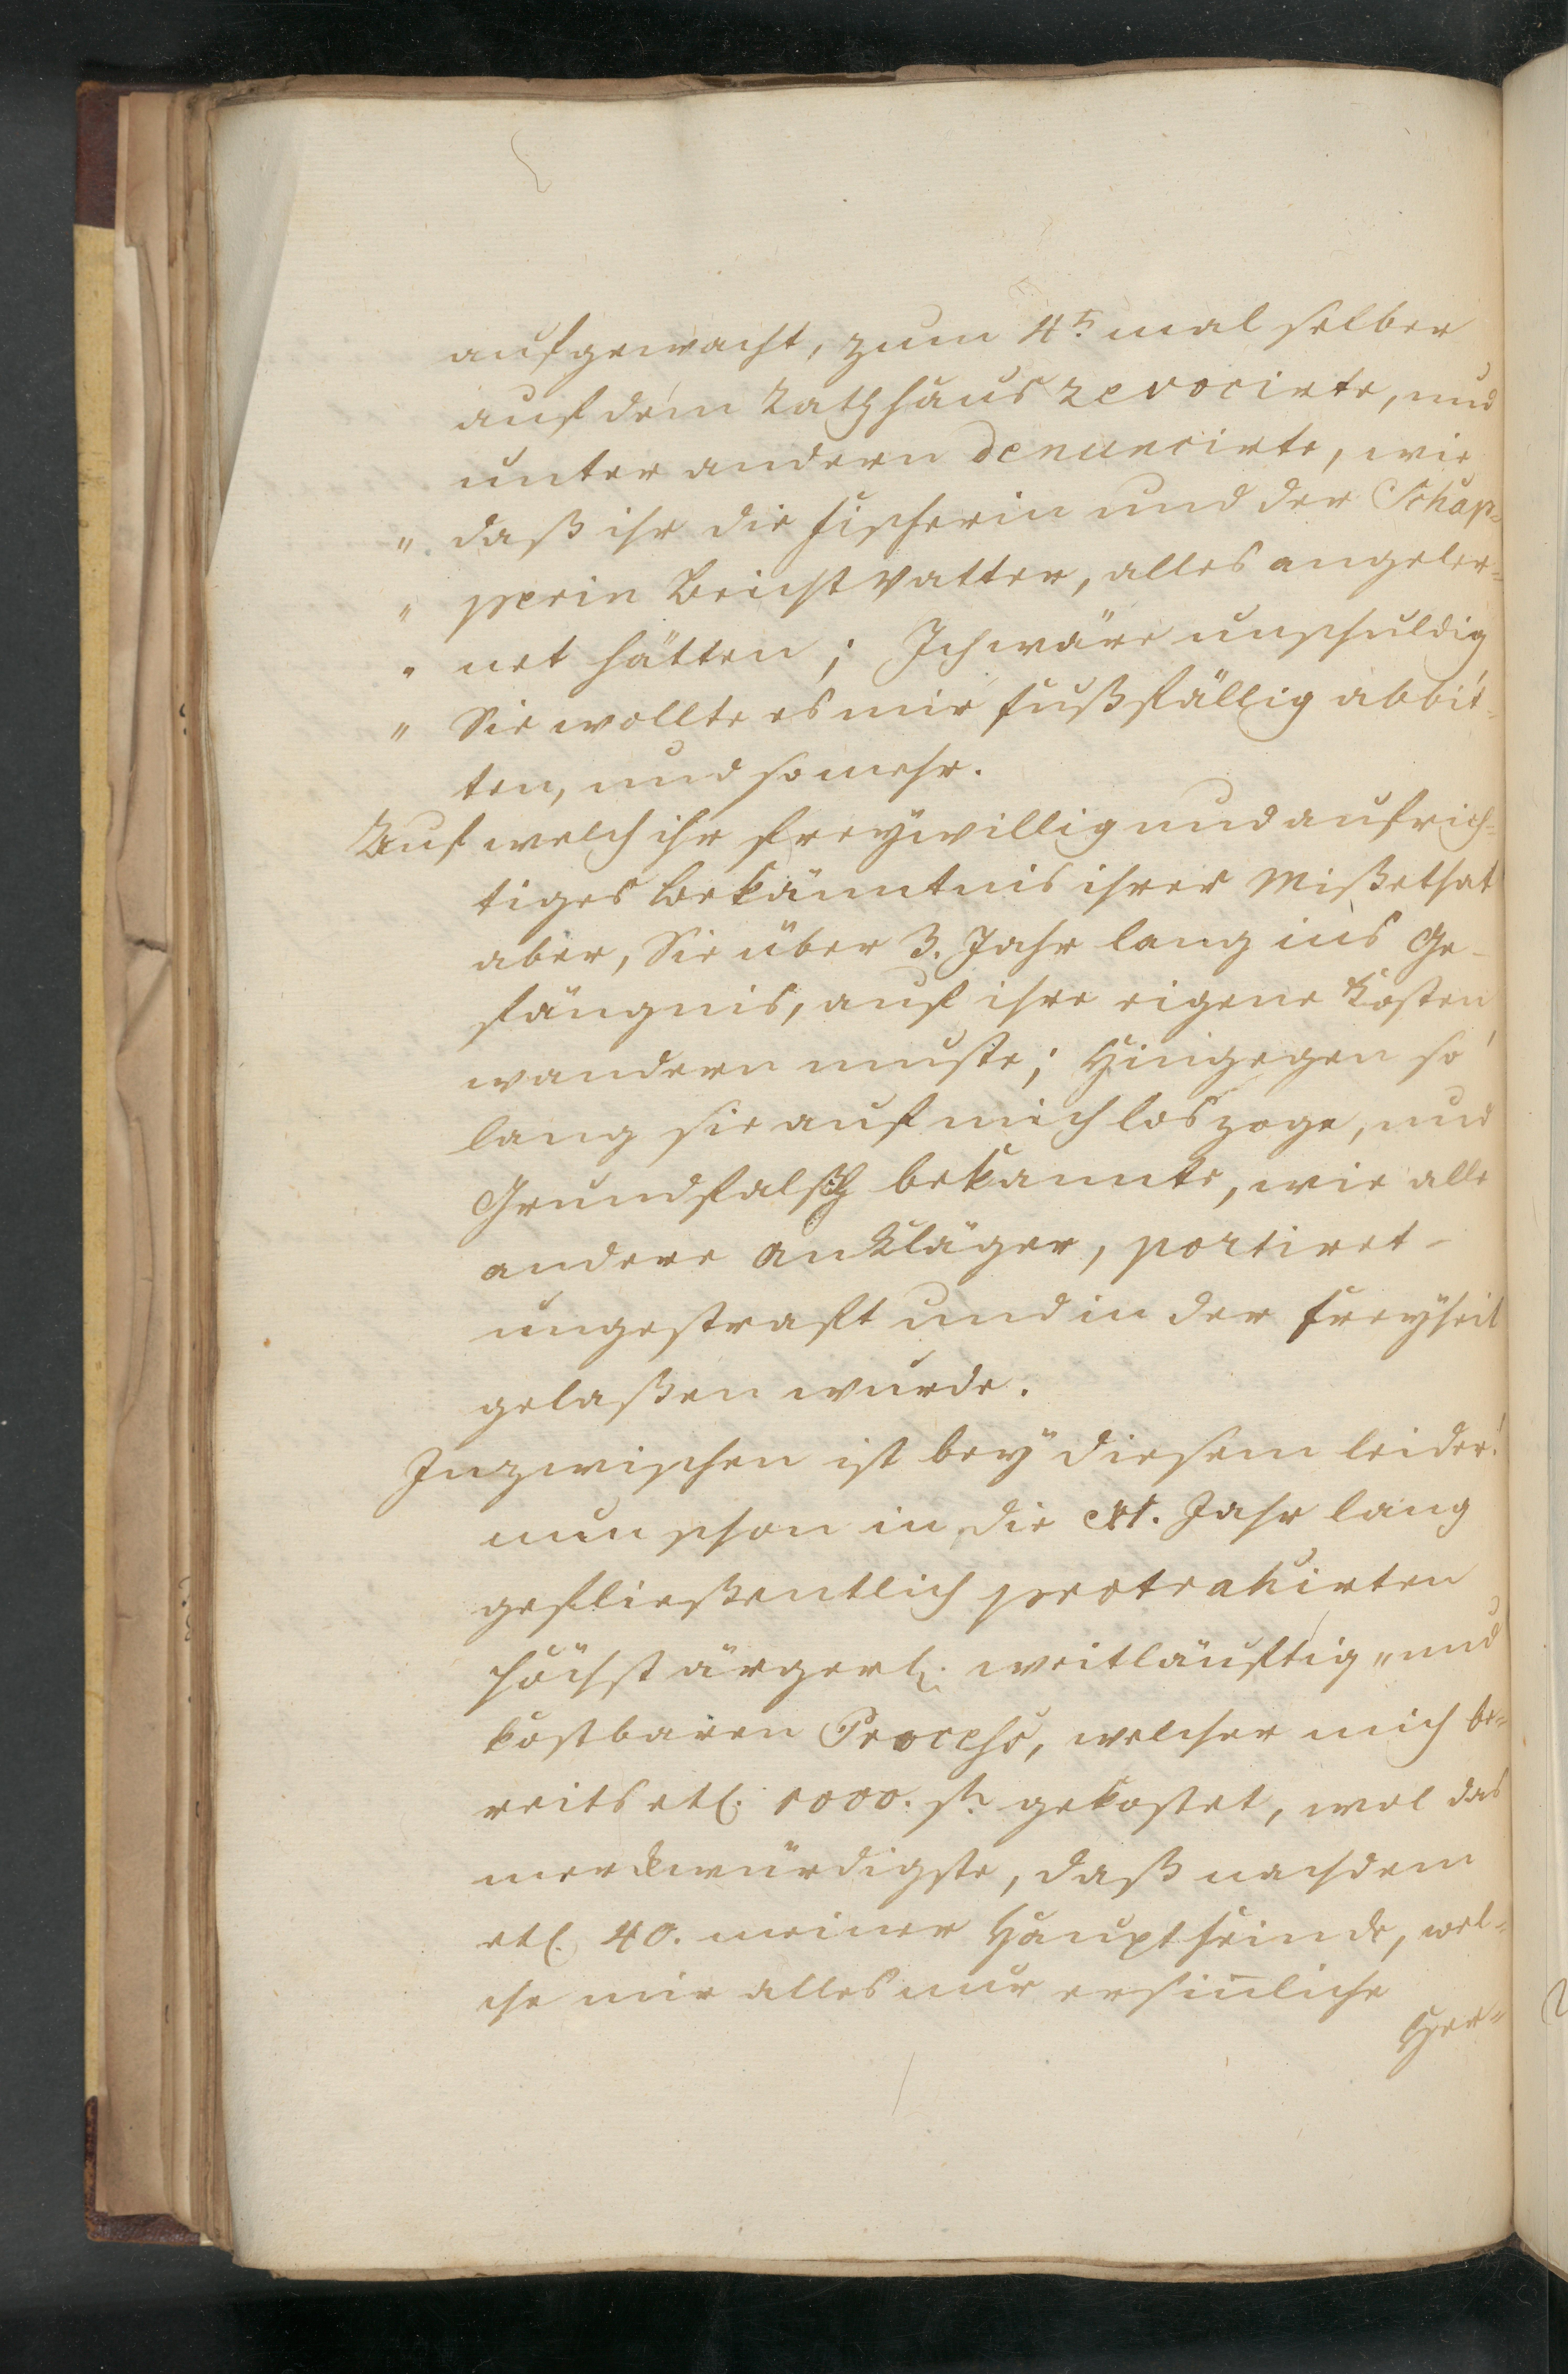 aufgewacht, zum 4t. mal selber
auf dem Rathhaus revocirte, und
unter andern denuncirte, wie
" daß ihr die Fischerin und der Schap-
" perin Beichtvatter, alles angeler-
" net hätten; Ich wäre unschuldig
" Sie wollte es mir fußfällig abbit-
ten, und so mehr.
Auf welch ihr freÿwillig und aufrich-
tiges Bekänntnis ihrer Mißethat
aber, Sie über 3. Jahr lang ins Ge-
fängnis, auf ihre eigene Kosten
wandern muste; Hingegen so
lang sie auf mich loszoge, und
Grundfalsch bekannte, wie alle
andere Ankläger, portiret-
ungestraft und in der Freÿheit
gelaßen wurde.
Inzwischen ist beÿ diesem leider!
nun schon in die Jahr lang
gefließentlich protrahirten
höchst ärgerl. weitläuftig " und
kostbaren Process, welcher mich be-
reits etl. 1000. fl. gekostet, wol das
merckwürdigste, daß nachdem
etl. 40. meiner Hauptfeinde, wel-
che mir alles nur ersinliche
Her-